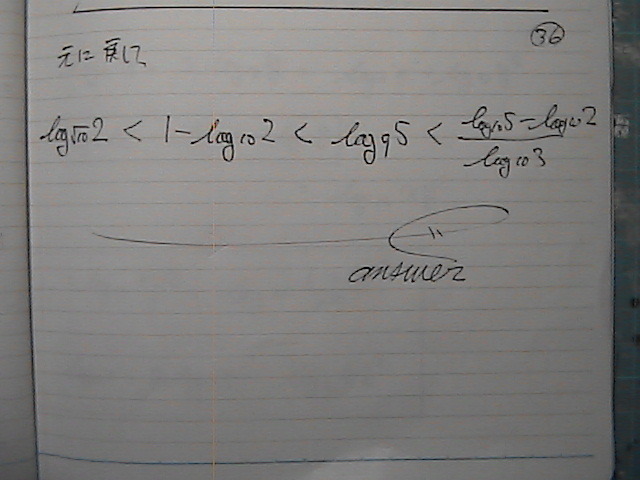 ㊱
元に戻して
log√10 2 < 1 - log10 2 < log9 5 < (log10 5 - log10 2)/(log10 3)
answer